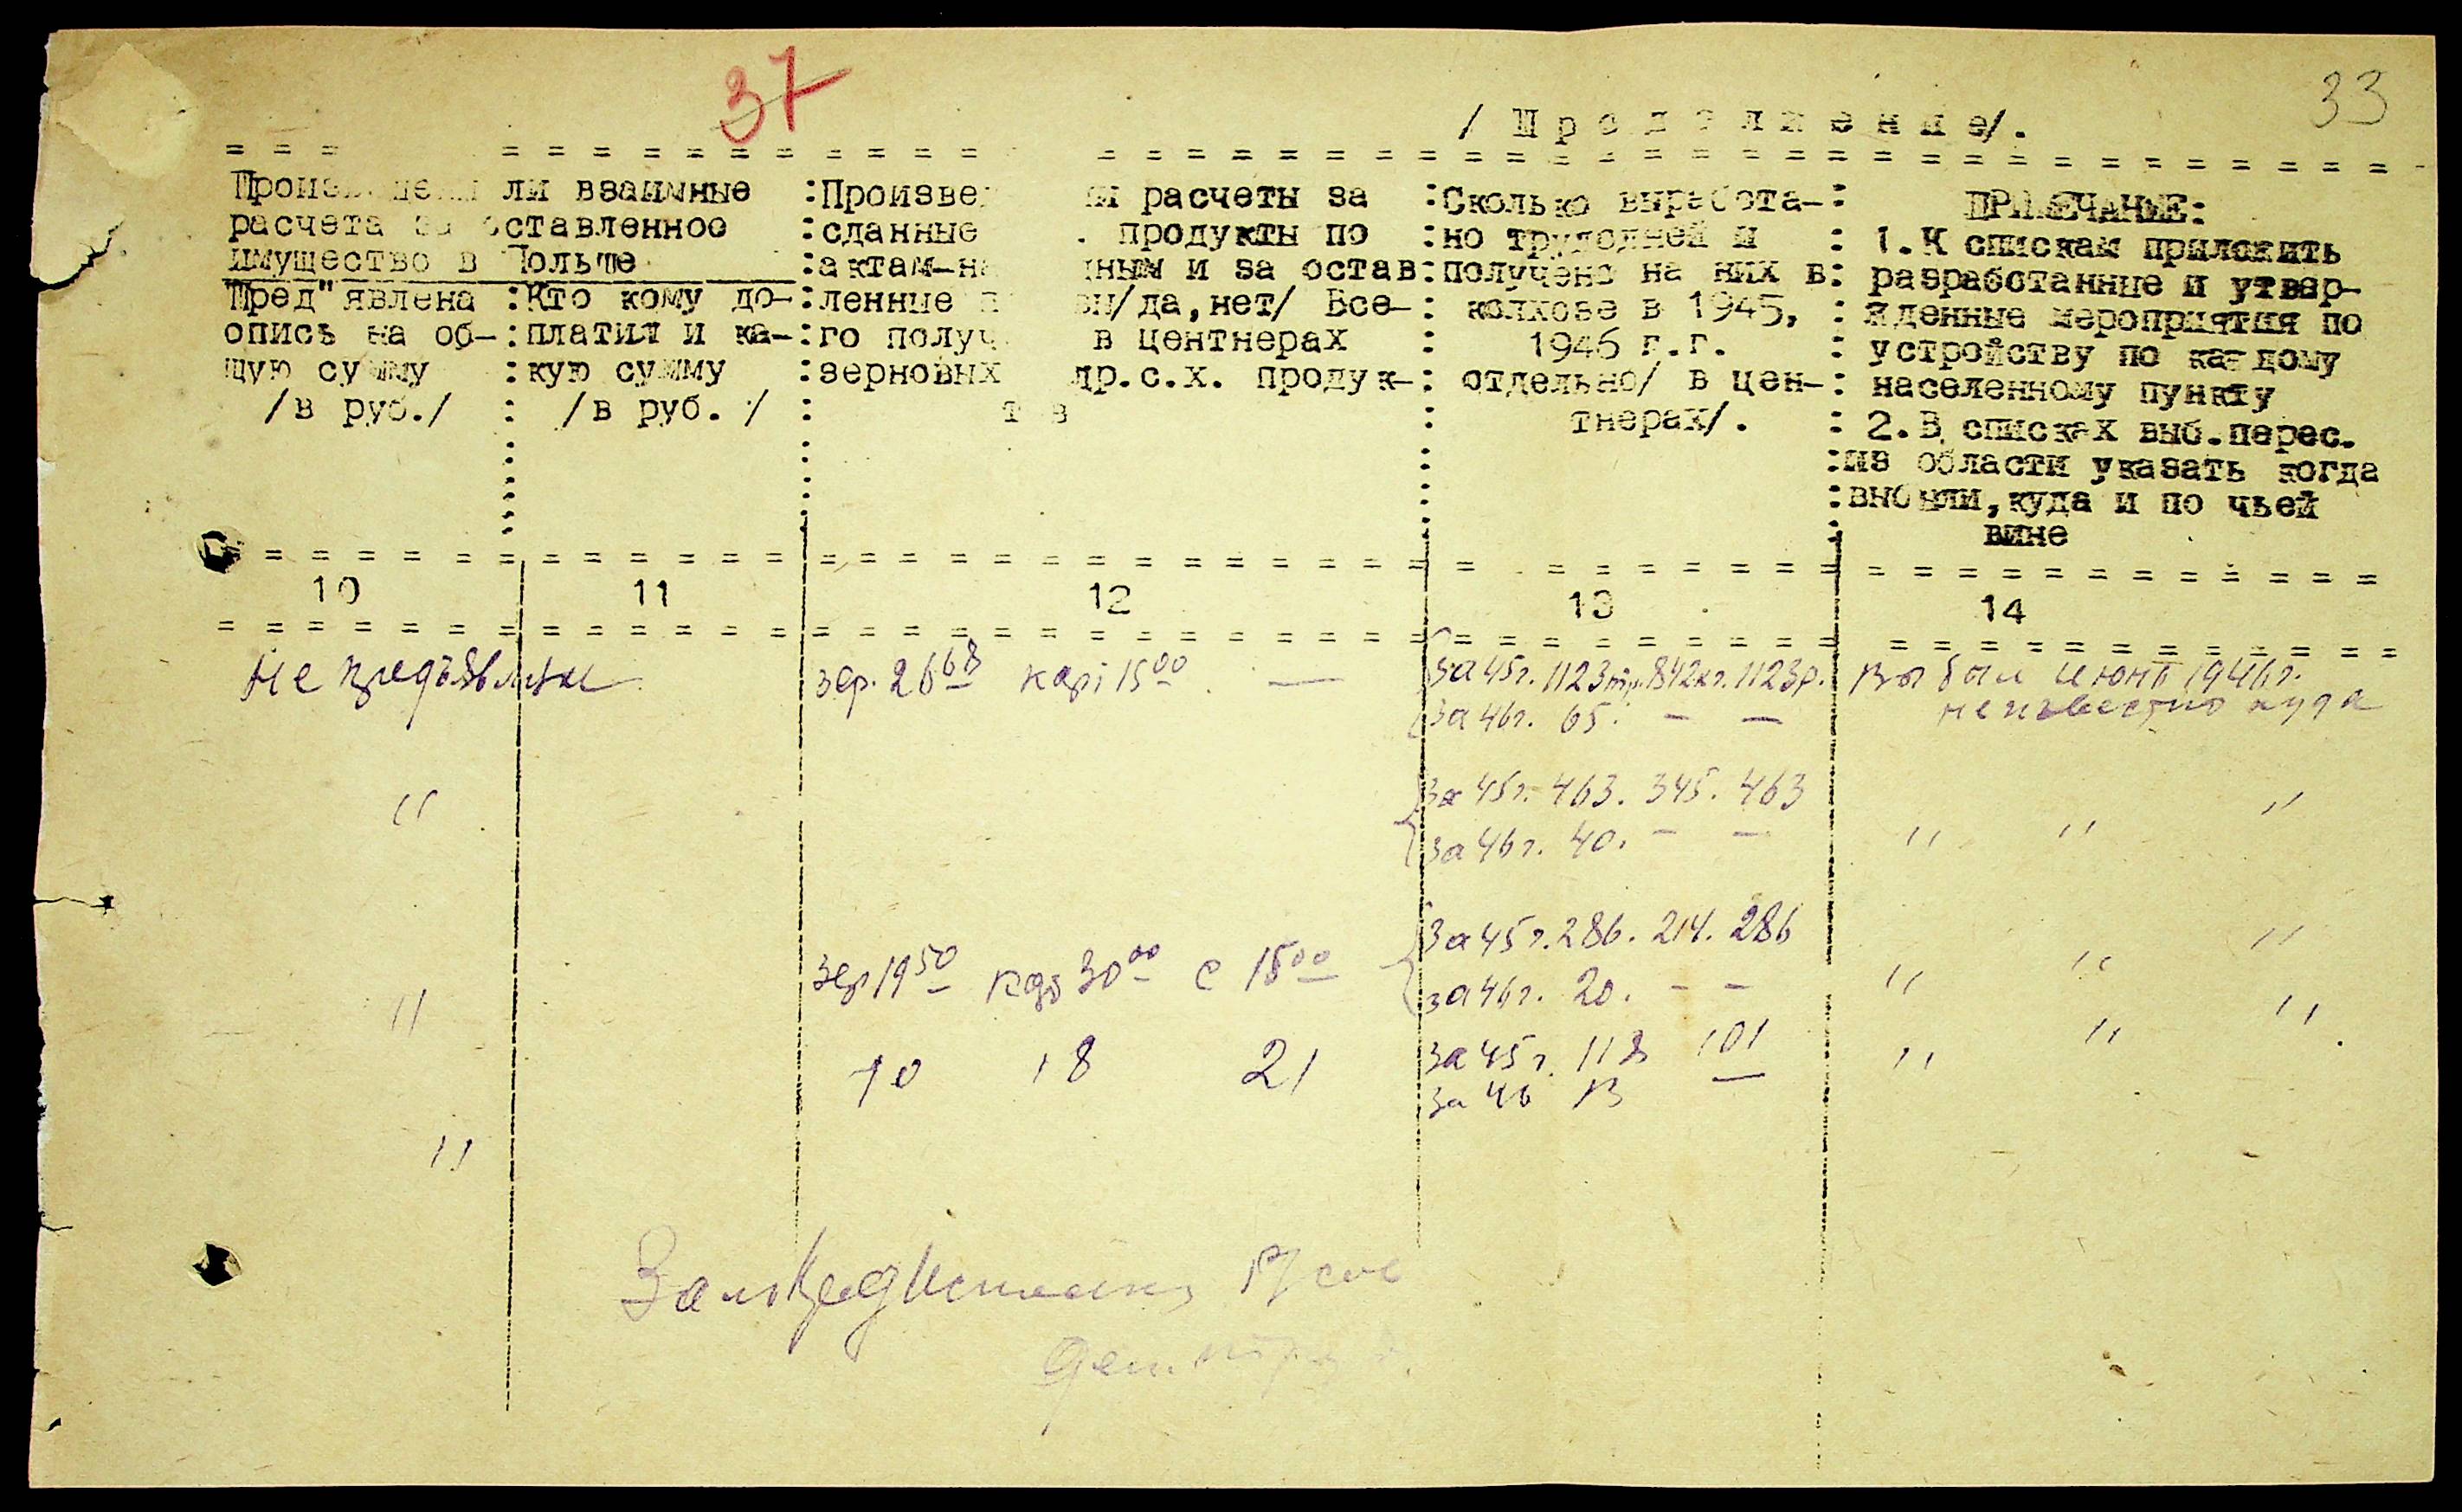 37
33
/ П р о д о л ж е н и е/.
= = = = = = = = = = = = = = = = = = = = = = = = = = = = = = = = = = = = = = = =
Произведены ли взаимные :Произве и расчеты за :Сколько выработа-: ПРИМЕЧАНИЕ:
расчета за оставленное :сданные . продукты по :но трудодней и : 1.К спискам приложить
имущество в Польше :актам-на ным и за остав:получено на них в: разработанные и утвер-
Пред"явлена :Кто кому до-:ленные п вы/да,нет/ Все-: колхозе в 1945, : жденные мероприятия по
опись на об-:платил и ка-:го получ в центнерах : 1946 г.г. : устройству по каждому
щую сумму :кую сумму :зерновых др.с.х. продук-: отдельно/ в цен-: населенному пункту
/в руб./ : /в руб. / : т в : тнерах/. : 2.В списках выб.перес.
:из области указать когда
:выбыли,куда и по чьей
вине
= = = = = = = = = = = = = = = = = = = = = = = = = = = = = = = = = = = = = = = =
10 11 12 13 14
= = = = = = = = = = = = = = = = = = = = = = = = = = = = = = = = = = = = = = = =
Не предъявлял зер. 26 68 карт 15 00 — За 45г. 1123тр. 842кг. 1123р. Выбыл июнь 1946г.
За 46г. 65. — — неизвестно куда
" За 45г. 463. 345. 463 "
За 46г. 40. — — " "
За 45г. 286. 214. 286 "
" зер 19 50 кар 30 00 с 15 00 за 46г. 20. — — " "
10 18 21 За 45г. 118 101 " " "
За 46 13 —
"
Зам